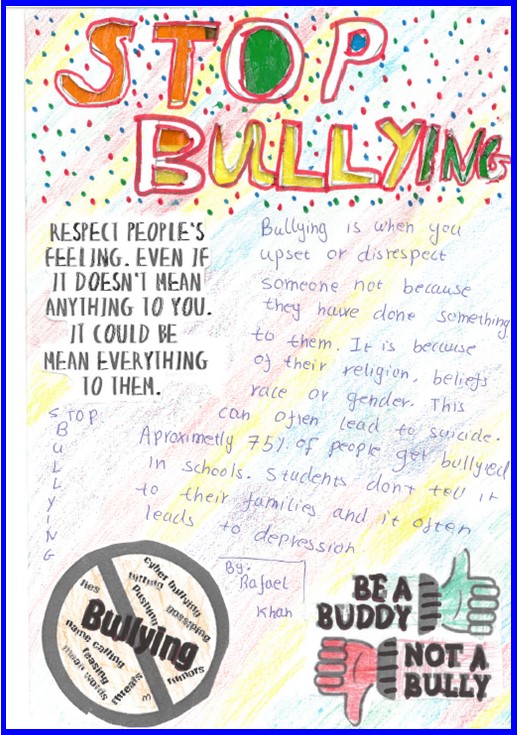 STOP
BULLYING
RESPECT PEOPLE'S
FEELING. EVEN IF
IT DOESN'T MEAN
ANYTHING TO YOU.
IT COULD BE
MEAN EVERYTHING
TO THEM.
Bullying is when you
upset or disrespect
someone not because
they have done something
to them. It is because
of their religion, beliefs
race or gender. This
can often lead to suicide.
Aproximetly 75% of people get bullyied
in schools. Students don't tell it
to their families and it often
leads to depression
STOP
BULLYING
By:
Rafael
Khan
cyber bullying
hitting
pushing
gossiping
Bullying
name calling
teasing
mean words
threats
rumors
BE A
BUDDY
NOT A
BULLY